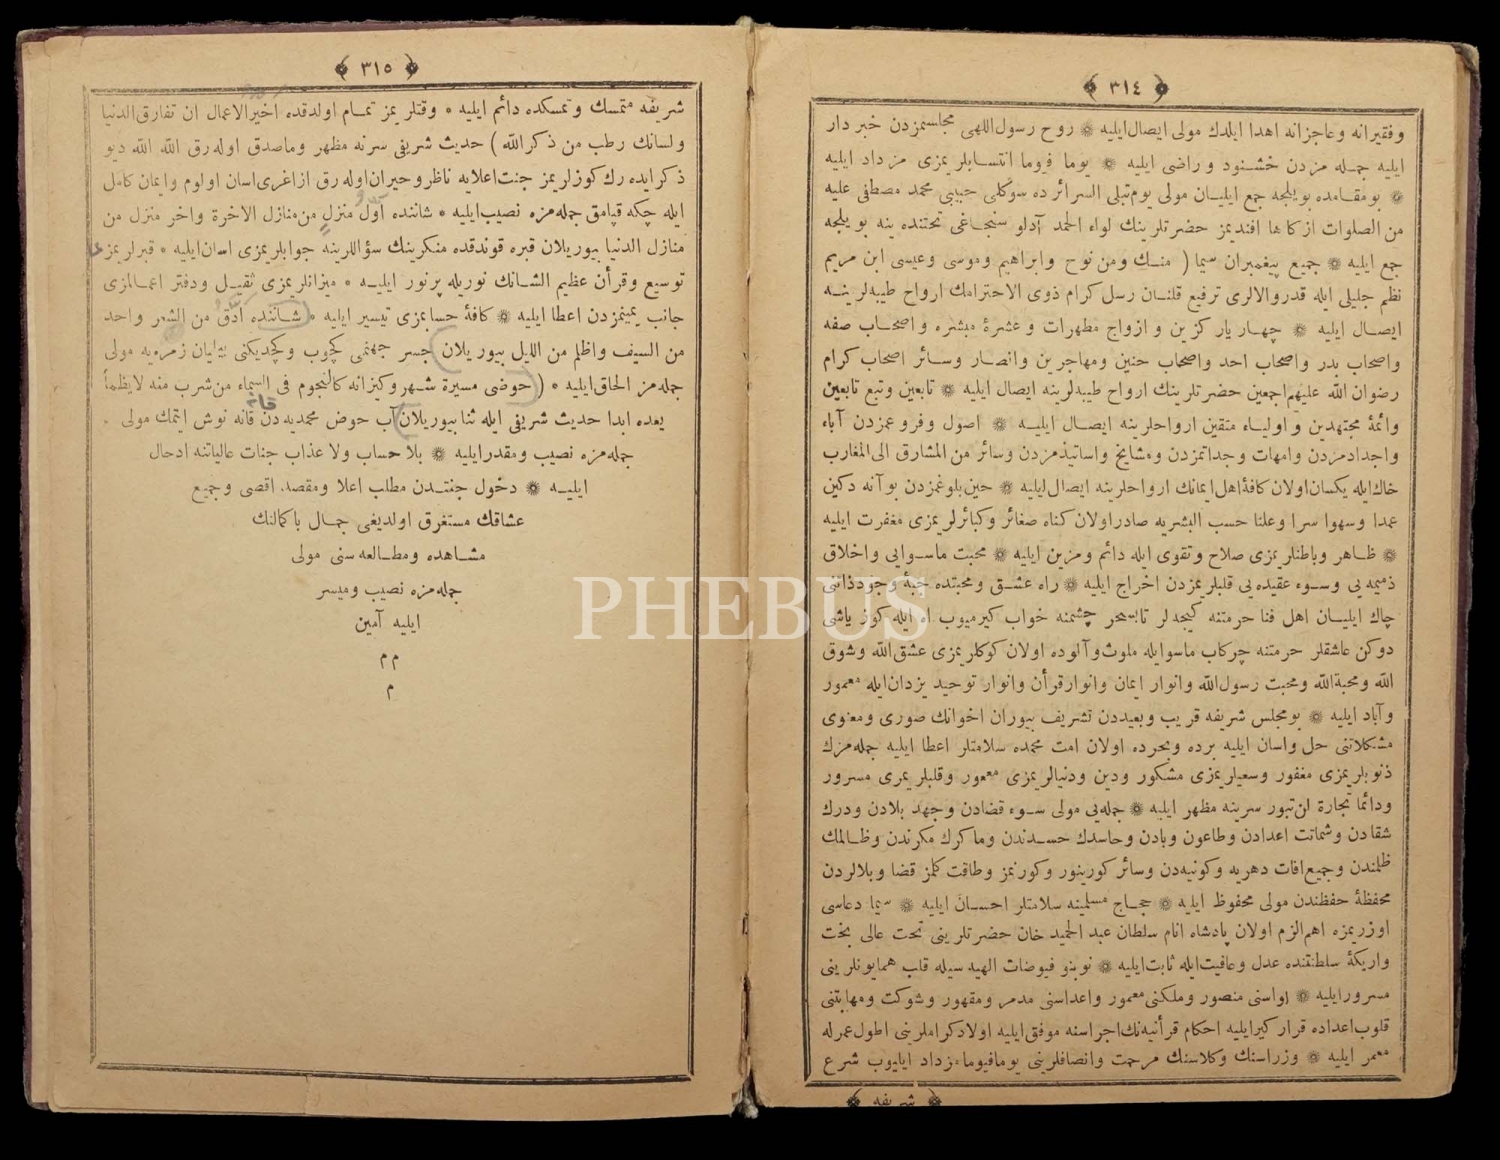 ﴿ ٣١٤ ﴾
وفقیرانه وعاجزانه اهدا ایلدك مولی ایصال‌ایلیه ❊ روح رسول‌اللهی مجلسمزدن خبر دار
ایلیه جمله مزدن خشنود وراضی ایلیه ❊ یوما فیوما انتسابلریمزی مزداد ایلیه
❊ بومقامده بویلجه جمع ایلیان مولی یوم‌تبلی السرائر ده سوکلی حبیبی محمد مصطفی علیه
من الصلوات ازکاها افندیمز حضرتلرینك لواء الحمد آدلو سنجاغی تحتنده ینه بویلجه
جمع ایلیه ❊ جمیع پیغمبران سیما ( منك ومن نوح وابراهیم وموسی وعیسی ابن مریم
نظم جلیلی ایله قدروالالری ترفیع قلنان رسل کرام ذوی الاحترامك ارواح طیبه‌لرینه
ایصال ایلیه ❊ چهاریار کزین و ازواج مطهرات وعشرۀ مبشره واصحاب صفه
واصحاب بدر واصحاب احد واصحاب حنین ومهاجرین وانصار وسائر اصحاب کرام
رضوان الله علیهم‌اجمعین حضرتلرینك ارواح طیبه‌لرینه ایصال ایلیه ❊ تابعین وتبع تابعین
وائمۀ مجتهدین واولیاء متقین ارواحلرینه ایصال ایلیه ❊ اصول وفروعمزدن آباء
واجدادمزدن وامهات وجداتمزدن ومشایخ واساتیذمزدن وسائر من المشارق الی‌المغارب
خاك‌ایله یکسان‌اولان کافۀ‌اهل‌ایمانك ارواحلرینه ایصال‌ایلیه ❊ حین‌بلوغمزدن بوآنه دکین
عمدا وسهوا سرا وعلنا حسب البشریه صادراولان کناه صغائر وکبائرلریمزی مغفرت ایلیه
❊ ظاهر وباطنلریمزی صلاح وتقوی ایله دائم ومزین ایلیه ❊ محبت ماسوایی واخلاق
ذمیمه‌یی وسوء عقیده‌یی قلبلریمزدن اخراج ایلیه ❊ راه عشق ومحبتده جبۀ وجودذاتنی
چاك ایلیان اهل فنا حرمتنه کیجه‌لر تابسحر چشمنه خواب کیرمیوب اه ایله کوز یاشی
دوکن عاشقلر حرمتنه چرکاب ماسوایله ملوث‌وآلوده اولان کوکلریمزی عشق‌الله وشوق
الله ومحبةالله ومحبت رسول‌الله وانوار ایمان وانوارقرأن وانوار توحید یزدان‌ایله معمور
وآباد ایلیه ❊ بومجلس شریفه قریب وبعیددن تشریف بیوران اخوانك صوری ومعنوی
مشکلاتنی حل واسان ایلیه برده وبحرده اولان امت محمده سلامتلر اعطا ایلیه جمله‌مزك
ذنوبلریمزی مغفور وسعیلریمزی مشکور ودین ودنیالریمزی معمور وقلبلریمزی مسرور
ودائما تجارة لن‌تبور سرینه مظهر ایلیه ❊ جمله‌یی مولی سوء قضادن وجهد بلادن ودرك
شقادن وشماتت اعدادن وطاعون وبادن وحاسدك حسدندن وماکرك مکرندن وظالمك
ظلمندن وجمیع‌افات دهریه وکونیه‌دن وسائر کورینور وکورنمز وطاقت کلمز قضا وبلالردن
محفظۀ حفظندن مولی محفوظ ایلیه ❊ حجاج مسلمینه سلامتلر احسان ایلیه ❊ سیما دعاسی
اوزریمزه اهم‌الزم اولان پادشاه انام سلطان عبد الحمید خان حضرتلرینی تحت عالی بخت
واریکۀ سلطنتنده عدل وعافیت‌ایله ثابت‌ایلیه ❊ نوبنو فیوضات الهیه سیله قلب همایونلرینی
مسرورایلیه ❊ لواسنی منصور وملکنی‌معمور واعداسنی مدمر ومقهور وشوکت ومهابتنی
قلوب‌اعداده قرارکیرایلیه احکام قرأنیه‌نك‌اجراسنه موفق‌ایلیه اولادکراملرینی اطول‌عمرله
معمر ایلیه ❊ وزراسنك وکلاسنك مرحمت وانصافلرینی یوما‌فیوما‌مزداد ایلیوب شرع
﴿ شریفه ﴾
﴿ ٣١٥ ﴾
شریفه متمسك وتمسکده دائم ایلیه * وقتلریمز تمام اولدقده اخیرالاعمال ان تفارق‌الدنیا
ولسانك رطب من ذکرالله ) حدیث شریفی سرنه مظهر وماصدق اوله‌رق الله الله دیو
ذکرایده‌رك کوزلریمز جنت‌اعلایه ناظروحیران‌اوله‌رق ازاغری‌اسان اولوم وایمان کامل
ایله چکه قپامق جمله‌مزه نصیب‌ایلیه * شاننده اول منزل من‌منازل الاخرة واخر منزل من
منازل الدنیا بیوریلان قبره قوندقده منکرینك سؤاللرینه جوابلریمزی اسان‌ایلیه * قبرلریمز
توسیع وقرأن عظیم الشانك نوریله پرنور ایلیه * میزانلریمزی ثقیل ودفتر اعمالمزی
جانب یمینمزدن اعطا ایلیه ❊ کافۀ حسابمزی تیسیر ایلیه * شاننده ادق من الشعر واحد
من السیف واظلم من اللیل بیوریلان جسر جهنمی کچوب وکچدیکنی بیلیان زمره‌یه مولی
جمله‌مز الحاق‌ایلیه * ( حوضی مسیرة شهر وکیزانه کالنجوم فی السماء من‌شرب منه لایظمأ
بعده ابدا حدیث شریفی ایله ثنا بیوریلان آب حوض محمدیه‌دن قانه نوش ایتمك مولی
جمله‌مزه نصیب ومقدرایلیه ❊ بلاحساب ولاعذاب جنات عالیاتنه ادخال
ایلیه ❊ دخول جنتدن مطلب اعلا ومقصد اقصی وجمیع
عشاقك مستغرق اولدیغی جمال باکمالنك
مشاهده ومطالعه سنی مولی
جمله‌مزه نصیب ومیسر
ایلیه آمین
م م
م
PHEBUS